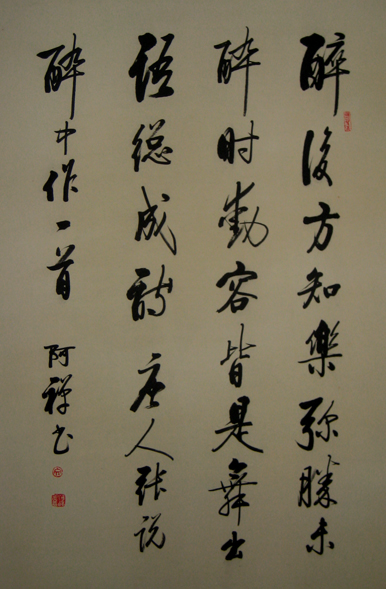 醉後方知樂弥勝未
醉时動容皆是舞出
語總成詩唐人張说
醉中作一首 阿禅书